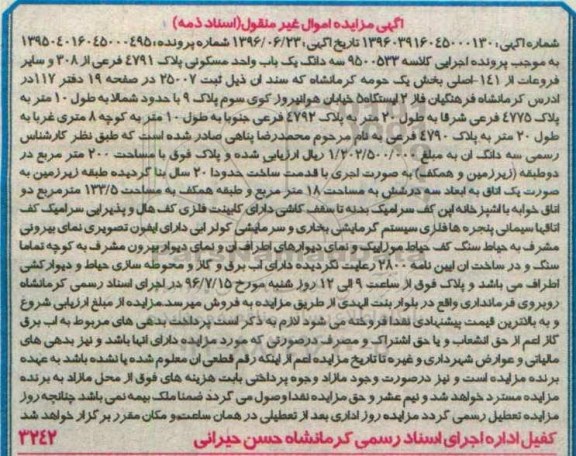 آگهی مزایده اموال غیر منقول(اسناد ذمه)
شماره آگهی: ۱۳۹۶۰۳۹۱۶۰۴۵۰۰۰۱۳۰ تاریخ آگهی: ۱۳۹۶/۰۶/۲۳ شماره پرونده: ۱۳۹۵۰۴۰۱۶۰۴۵۰۰۰۴۹۵
به موجب پرونده اجرایی کلاسه ۹۵۰۰۵۳۳ سه دانگ یک باب واحد مسکونی پلاک ۴۷۹۱ فرعی از ۳۰۸ و سایر
فروعات از ۱۴۱-اصلی بخش یک حومه کرمانشاه که سند آن ذیل ثبت ۲۵۰۰۷ در صفحه ۱۹ دفتر ۱۱۷در
ادرس کرمانشاه فرهنگیان فاز ۲ ایستگاه۵ خیابان هوانیروز کوی سوم پلاک ۹ با حدود شمالا به طول ۱۰ متر به
پلاک ۴۷۷۵ فرعی شرقا به طول ۲۰ متر به پلاک ۴۷۹۲ فرعی جنوبا به طول ۱۰ متر به کوچه ۸ متری غربا به
طول ۲۰ متر به پلاک ۴۷۹۰ فرعی به نام مرحوم محمدرضا پناهی صادر شده است که طبق نظر کارشناس
رسمی سه دانگ آن به مبلغ ۱/۲۰۲/۵۰۰/۰۰۰ ریال ارزیابی شده و پلاک فوق با مساحت ۲۰۰ متر مربع در
دوطبقه (زیرزمین و همکف) به صورت اجری با قدمت ساخت حدودا ۲۰ سال بنا گردیده طبقه زیرزمین به
صورت یک اتاق به ابعاد سه درشش به مساحت ۱۸ متر مربع و طبقه همکف به مساحت ۱۳۲/۵ مترمربع دو
اتاق خوابه با اشپزخانه اپن کف سرامیک بدنه تا سقف کاشی دارای کابینت فلزی کف هال و پذیرایی سرامیک کف
اتاقها سیمانی پنجره ها فلزی سیستم گرمایشی بخاری و سرمایشی کولر ابی دارای ایفون تصویری نمای بیرونی
مشرف به حیاط سنگ کف حیاط موزاییک و نمای دیوارهای اطراف آن و نمای دیوار بیرون مشرف به کوچه تماما
سنگ و در ساخت ان ایین نامه ۲۸۰۰ رعایت نگردیده دارای آب برق و گاز و محوطه سازی حیاط و دیوارکشی
اطراف می باشد و پلاک فوق از ساعت ۹ الی ۱۲ روز شنبه مورخ ۹۶/۷/۱۵ در اجرای اسناد رسمی کرمانشاه
روبروی فرمانداری واقع در بلوار بنت الهدی از طریق مزایده به فروش میرسد.مزایده از مبلغ ارزیابی شروع
و به بالاترین قیمت پیشنهادی نقدا فروخته می شود لازم به ذکر است پرداخت بدهی های مربوط به اب برق
گاز اعم از حق انشعاب و یا حق اشتراک و مصرف درصورتی که مورد مزایده دارای آنها باشد و نیز بدهی های
مالیاتی و عوارض شهرداری و غیره تا تاریخ مزایده اعم از اینکه رقم قطعی ان معلوم شده یا نشده باشد به عهده
برنده مزایده است و نیز درصورت وجود مازاد وجوه پرداختی بابت هزینه های فوق از محل مازاد به برنده
مزایده مسترد خواهد شد و نیم عشر و حق مزایده نقدا وصول می گردد ضمنا ملک بیمه نمی باشد چنانچه روز
مزایده تعطیل رسمی گردد مزایده روز اداری بعد از تعطیلی در همان ساعت و مکان مقرر برگزار خواهد شد
کفیل اداره اجرای اسناد رسمی کرمانشاه حسن حیرانی ۳۲۴۲